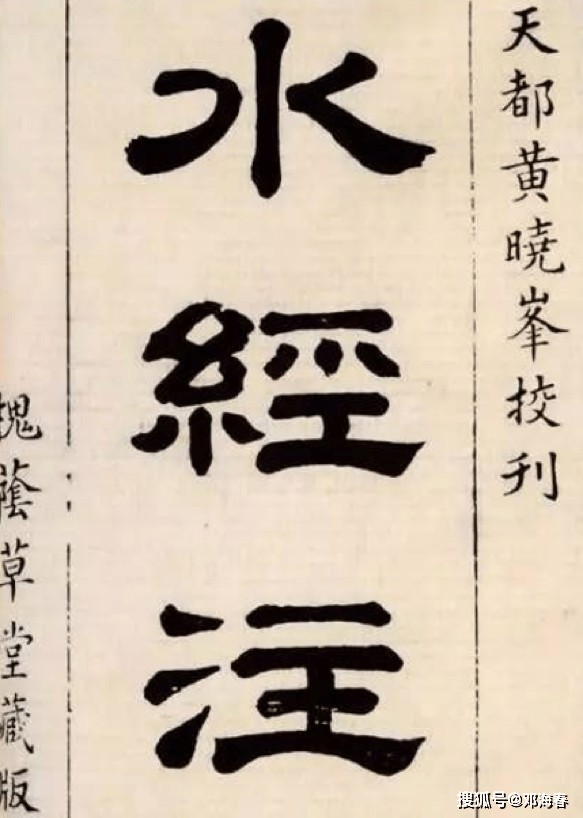 天都黄曉峯挍刋
水經注
槐蔭草堂藏版
搜狐号@邓海春